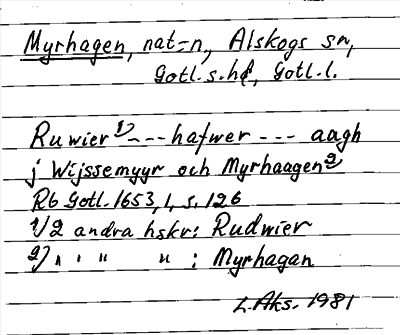 Myrhagen, nat=n, Alskogs sn,
Gotl. s. hd, Gotl. l.
Ruwier 1) --- hafwer --- aagh
j Wijssemyyr och Myrhaagen 2)
Rb Gotl. 1653, 1, s. 126
1) 2 andra hskr: Rudwier
2) " " " " : Myrhagan
L. Aks. 1981